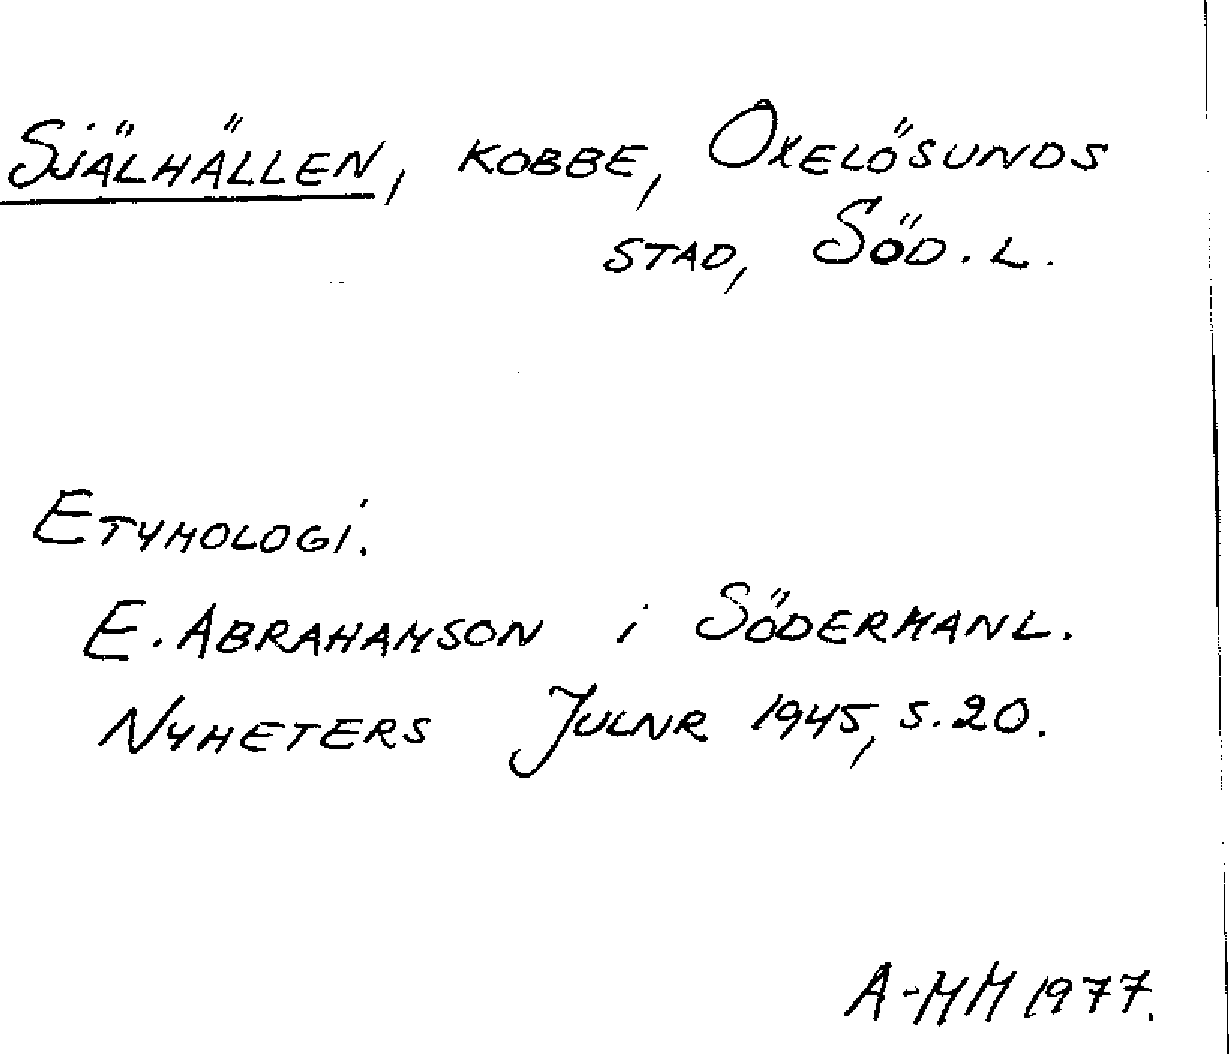 Själhällen, kobbe, Oxelösunds
stad, Söd. L.
Etymologi.
E. Abrahamson i Södermanl.
Nyheters Julnr 1945, s. 20.
A-MM 1977.